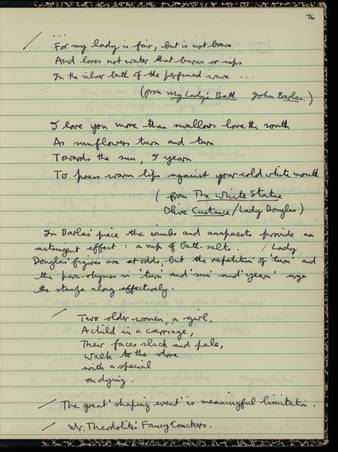 76
...
For my lady is fair, but is not brave
And loves not water that burns or nips
In the silver bath of the perfumed wave ...
(from My Lady's Bath John Barlas.)
I love you more than swallows love the south
As sunflowers turn and turn
Towards the sun, I yearn
To press warm lips against your cold white mouth
( from The White Statue
Olive Custance / Lady Douglas )
In Barlas' piece the iambs and anapaests provide an
astringent effect : a nip of bath-salts. / Lady
Douglas' figures are at odds, but the repetition of 'turn' and
the para-rhymes in 'turn' and 'sun' and 'yearn' urge
the stanza along effectively.
/ Two older women, a girl,
A child in a carriage,
Their faces slack and pale,
walk to the store
with a special
on dying.
/ The great 'shaping event' is meaningful limitation.
/ Mr. Theodolite's Fancy Crackers.